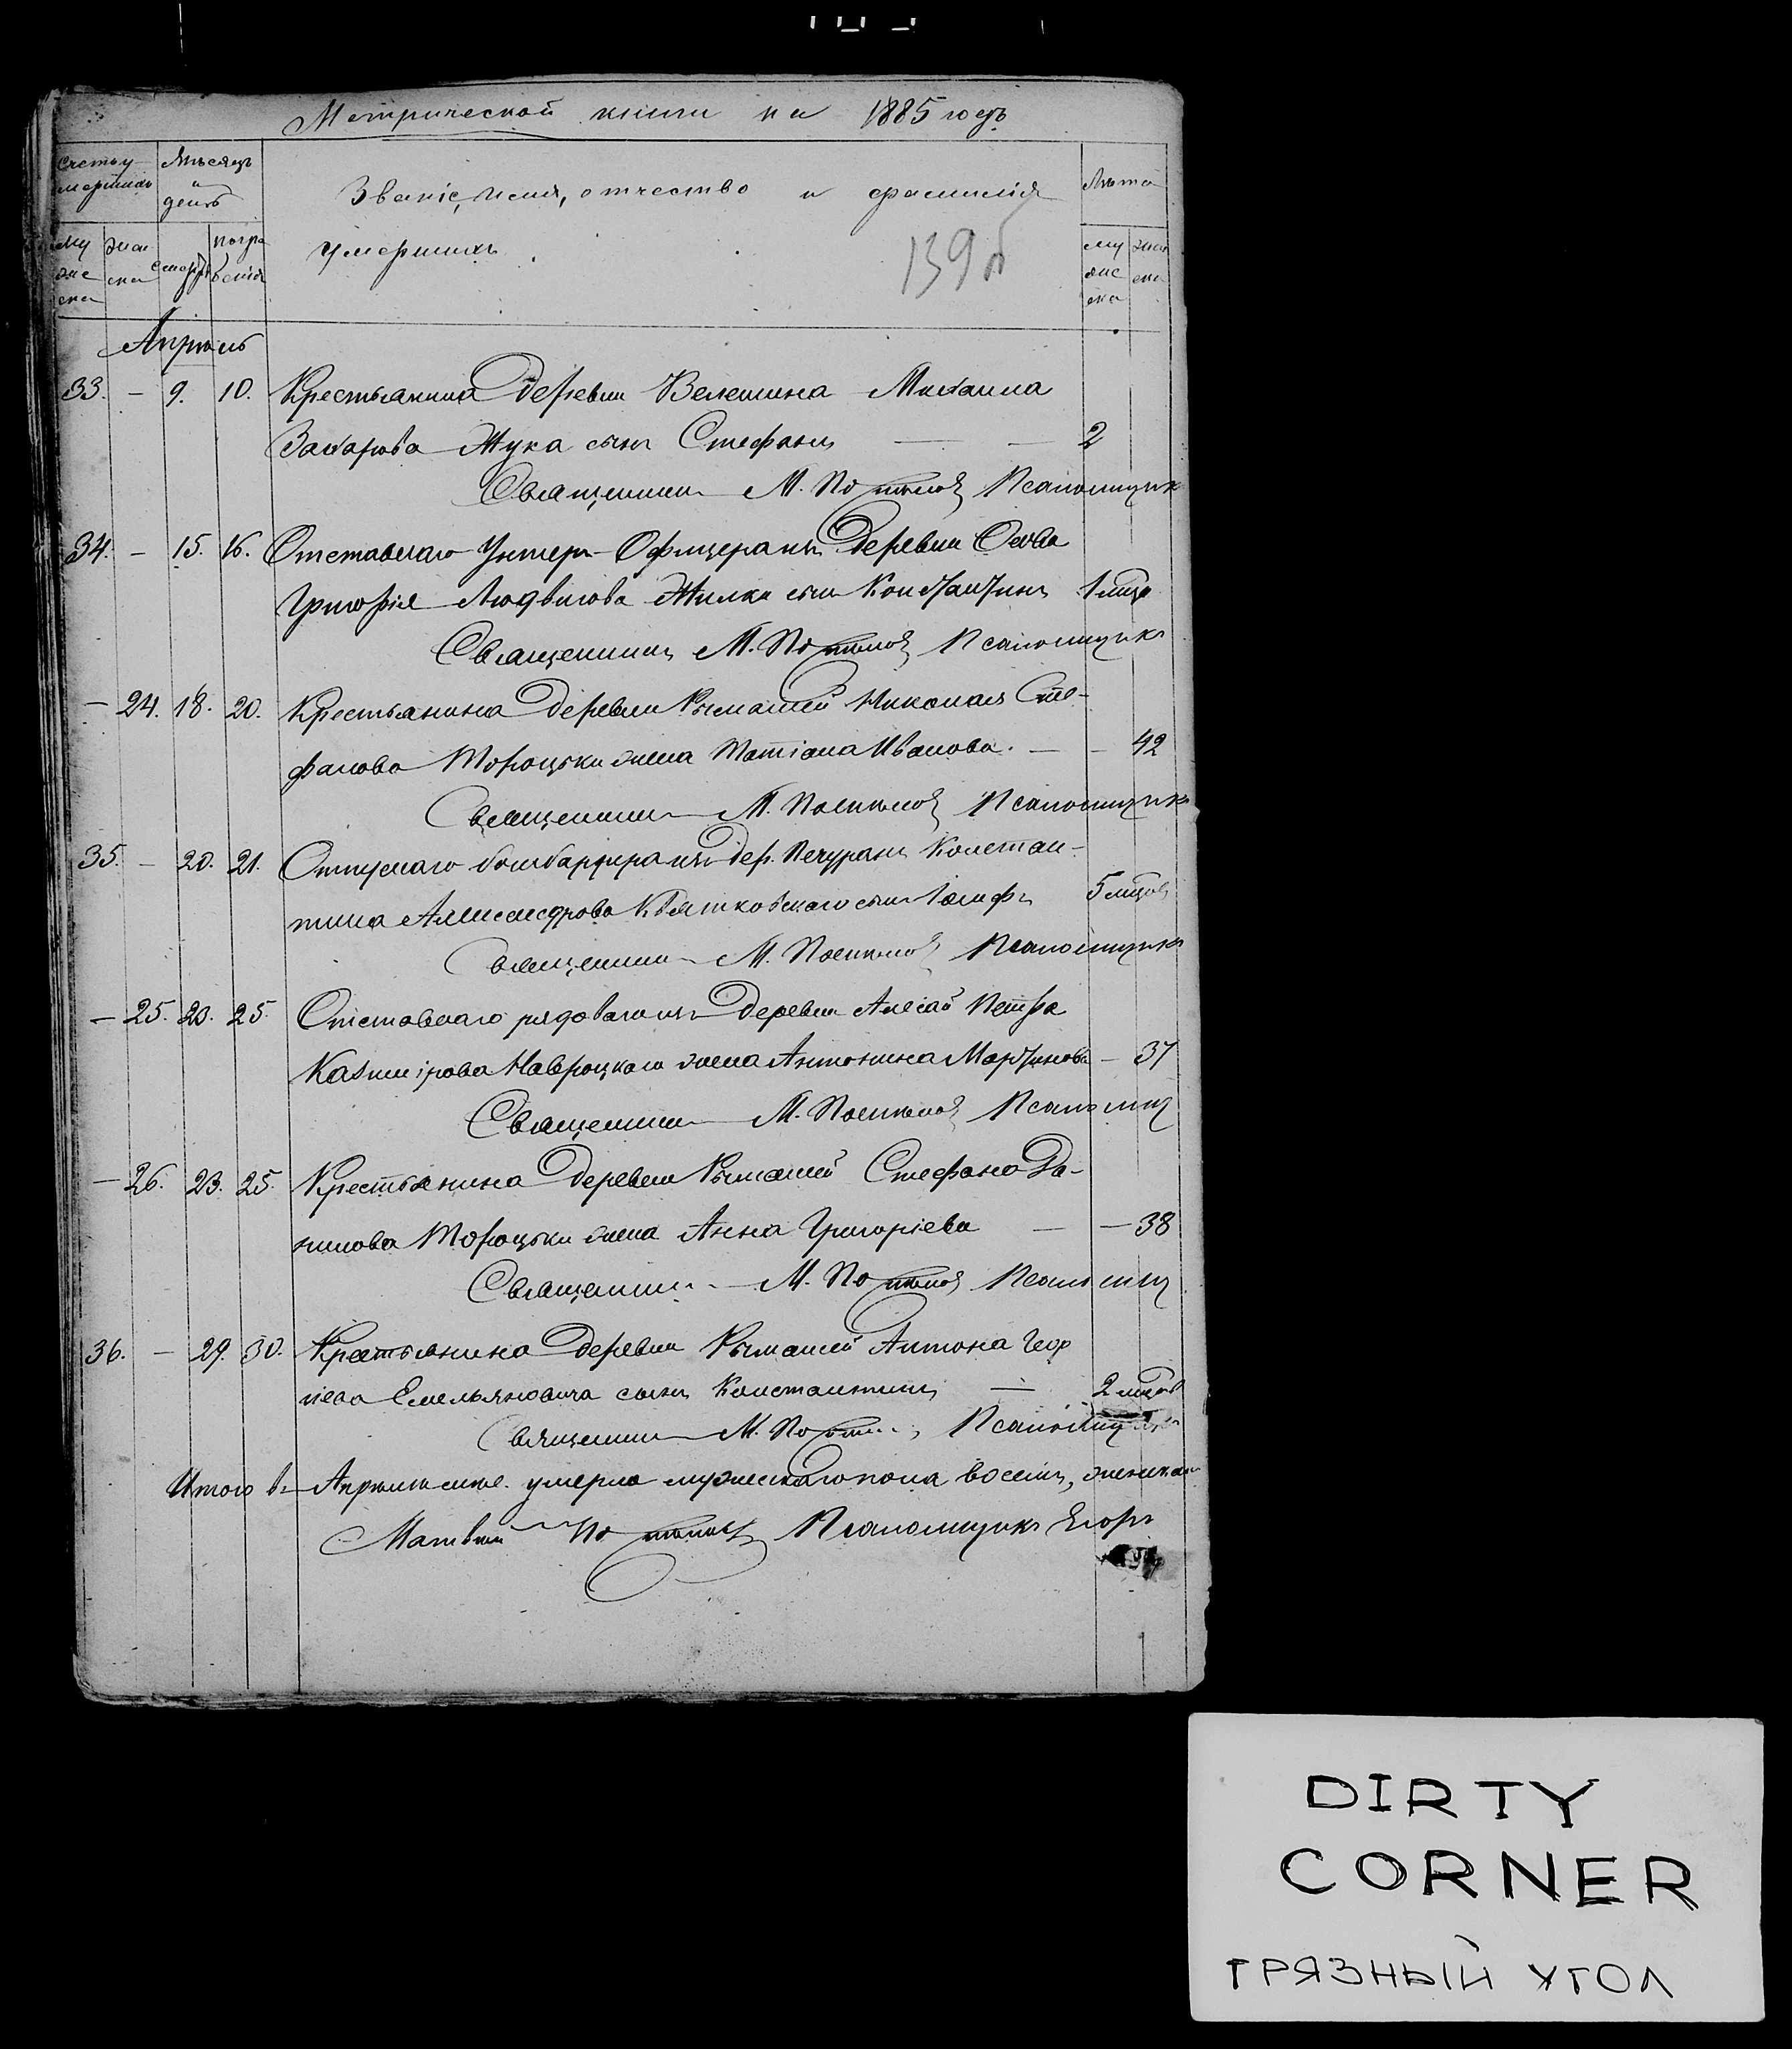 Метрической книги на 1885 годъ
Счетъ умершихъ
Мѣсяцъ и день
Званіе, имя, отчество и фамилія
умершихъ.
Лѣта
Мужеска
Женска
Смерти
Погребенія
Мужеска
Женска
139 об
Апрѣль
33. – 9. 10. Крестьянина деревни Велешина Михаила
Захарова Жука сынъ Стефанъ — — 2
Священникъ М. Псаломщикъ
34. – 15. 16. Отставнаго Унтеръ-Офицера изъ деревни Осова
Григорія Людвигова Жилки сынъ Константинъ 1 мѣс.
Священникъ М. Псаломщикъ
– 24. 18. 20. Крестьянина деревни Рымашей Николая Сте-
фанова Тороцьки жена Татіана Иванова. — – 42
Священникъ М. Псаломщикъ
35. – 20. 21. Отпускнаго бомбардира изъ дер. Печуранъ Констан-
тина Александрова Квятковскаго сынъ Іосифъ 5 мѣсяц.
Священникъ М. Псаломщикъ
– 25. 23. 25. Отставнаго рядоваго изъ деревни Петра
Казимірова Навроцкаго жена Антонина Мартинова – 37
Священникъ М. Псаломщ
– 26. 23. 25. Крестьянина деревни Рымашей Стефана Да-
нилова Тороцьки жена Анна Григоріева — – 38
Священникъ М. Псаломщ
36. – 29. 30. Крестьянина деревни Рымашей Антона Геор
гіева Емельяновича сынъ Константинъ — 2 мѣсяц
Священникъ М. Псаломщикъ
Итого въ Апрѣлѣ мѣс. умерло мужескаго пола восемь, женскаго
Матвѣй Псаломщикъ Егоръ
DIRTY
CORNER
ГРЯЗНЫЙ УГОЛ